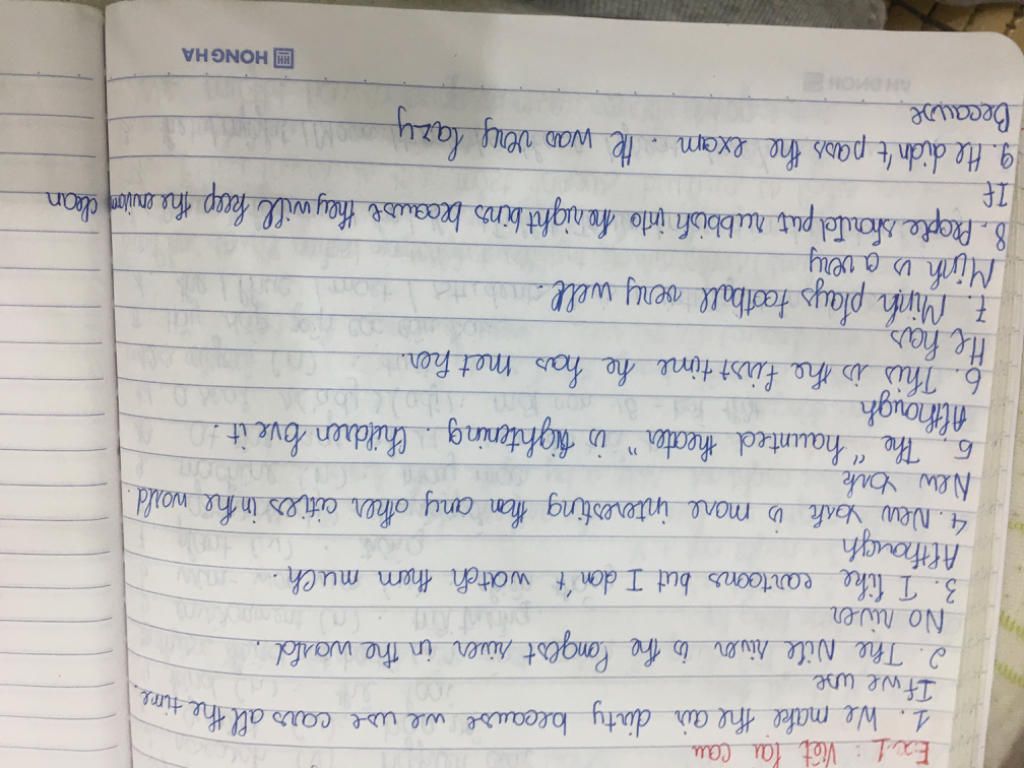 HONG HA
Ex1: Viết lại câu
1. We make the air dirty because we use cars all the time.
If we use
2. The Nile river is the longest river in the world.
No river
3. I like cartoons but I don't watch them much.
Although
4. New York is more interesting than any other cities in the world.
New York
5. The "haunted theater" is frightening. Children love it.
Although
6. This is the first time he has met her.
He has
7. Minh plays football very well.
Minh is a very
8. People should put rubbish into the right bins because they will keep the environ clean
If
9. He didn't pass the exam. He was very lazy
Because